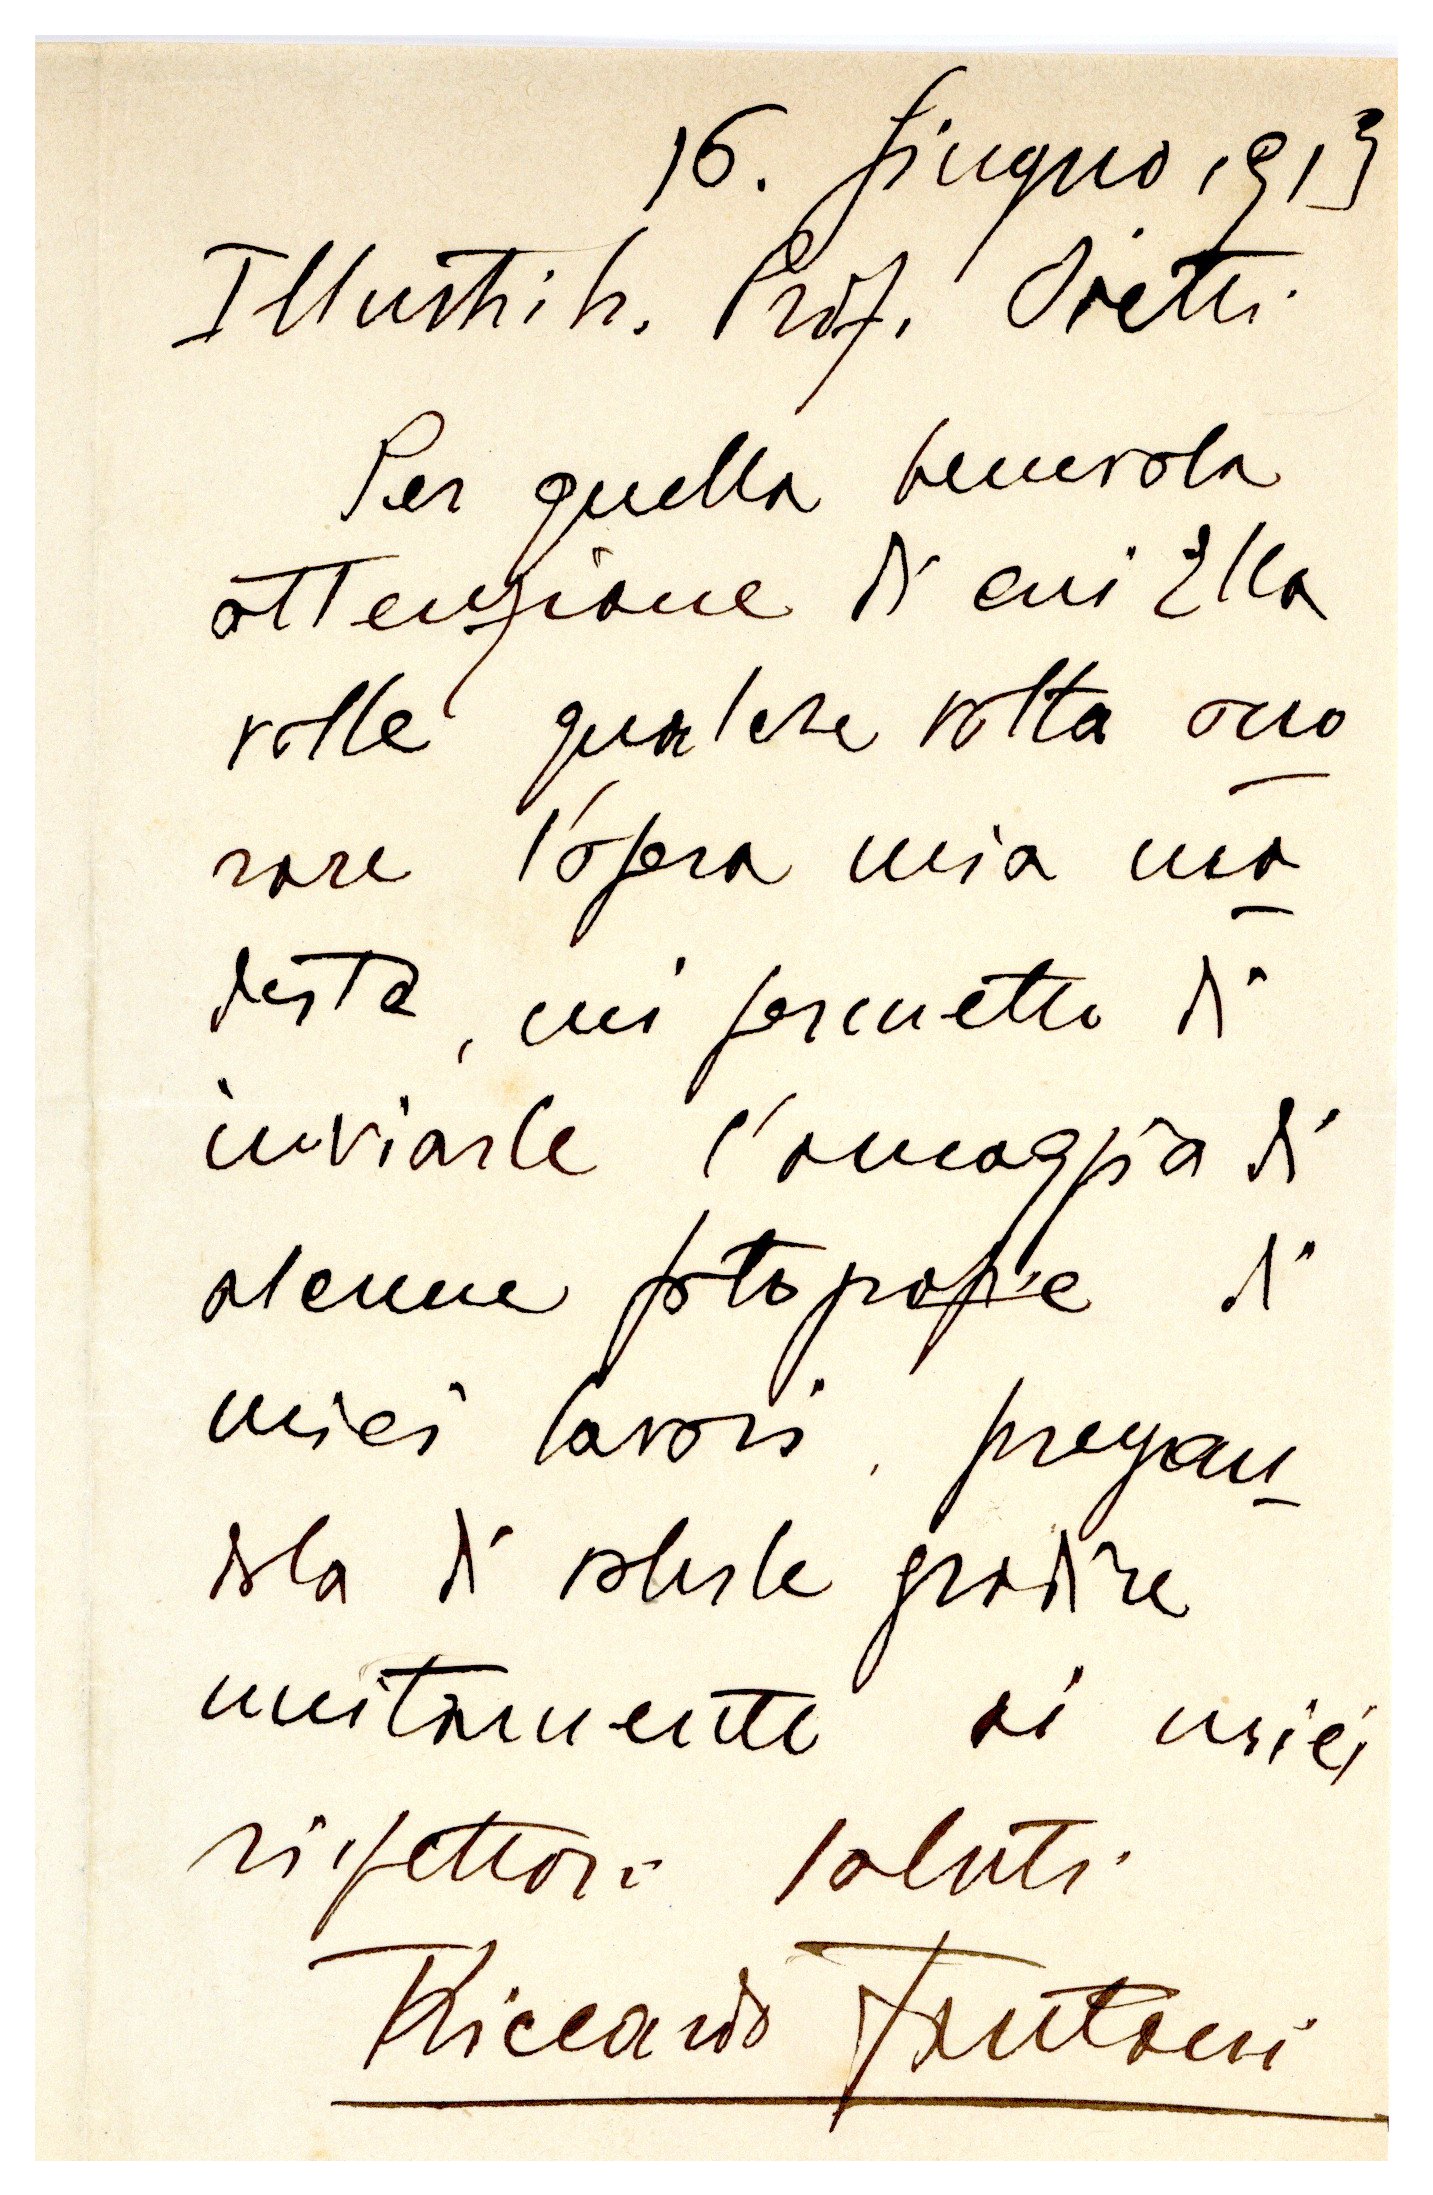 16. Giugno 1913
Illustris. Prof. Vietti
Per quella benevola
attenzione di cui Ella
volle qualche volta ono
rare l'opera mia mo
desta, mi permetto di
inviarle l'omaggio di
alcune fotografie di
miei lavori, pregan
dola di volerle gradire
unitamente ai miei
rispettosi saluti.
Riccardo Fantoni